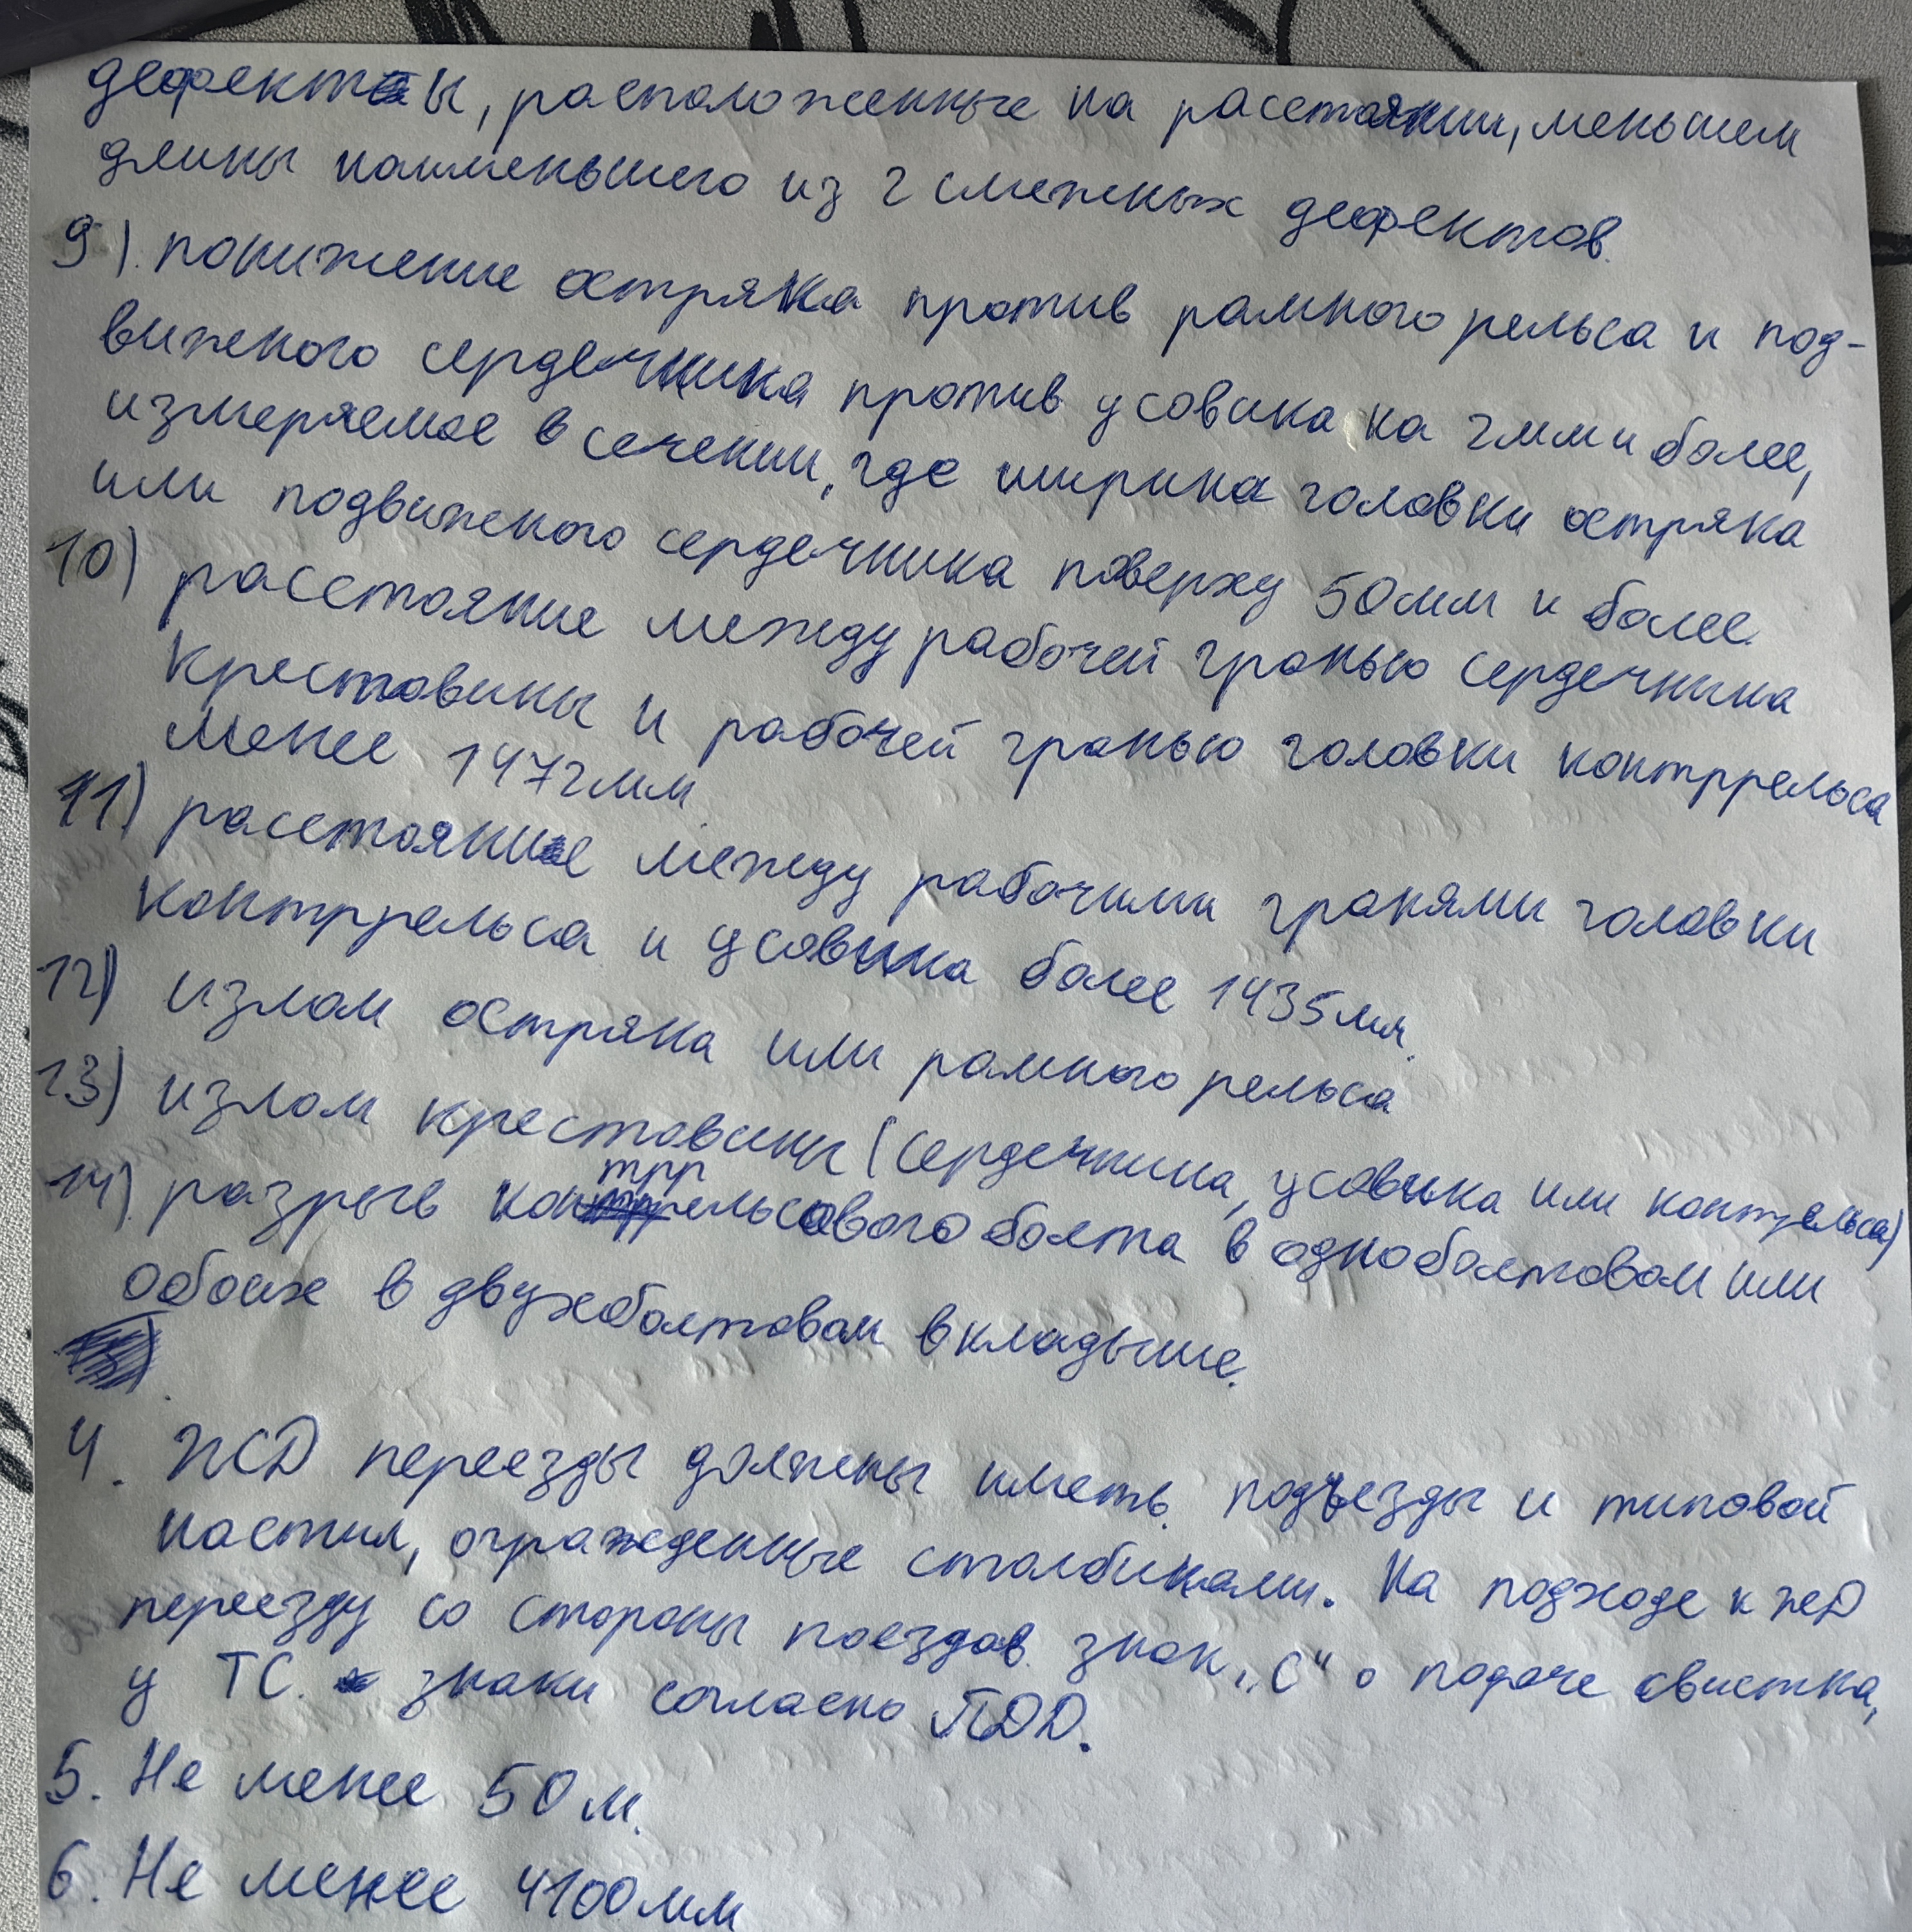 дефекты, расположенные на расстоянии, меньшем
длины наименьшего из 2 смежных дефектов.
9). понижение остряка против рамного рельса и под-
вижного сердечника против усовика на 2мм и более,
измеряемое в сечении, где ширина головки остряка
или подвижного сердечника поверху 50мм и более.
10) расстояние между рабочей гранью сердечника
крестовины и рабочей гранью головки контррельса
менее 1472мм.
11) расстояние между рабочими гранями головки
контррельса и усовика более 1435мм.
12) излом остряка или рамного рельса
13) излом крестовины (сердечника, усовика или контрельса)
14) разрыв контррельсового болта в одноболтовом или
обоих в двухболтовом вкладыше.
4. ЖД переезды должны иметь подъезды и типовой
настил, огражденные столбиками. На подходе к жД
переезду со стороны поездов знак „С“ о подаче свистка,
у ТС. знаки согласно ПДД.
5. Не менее 50м.
6. Не менее 4100мм